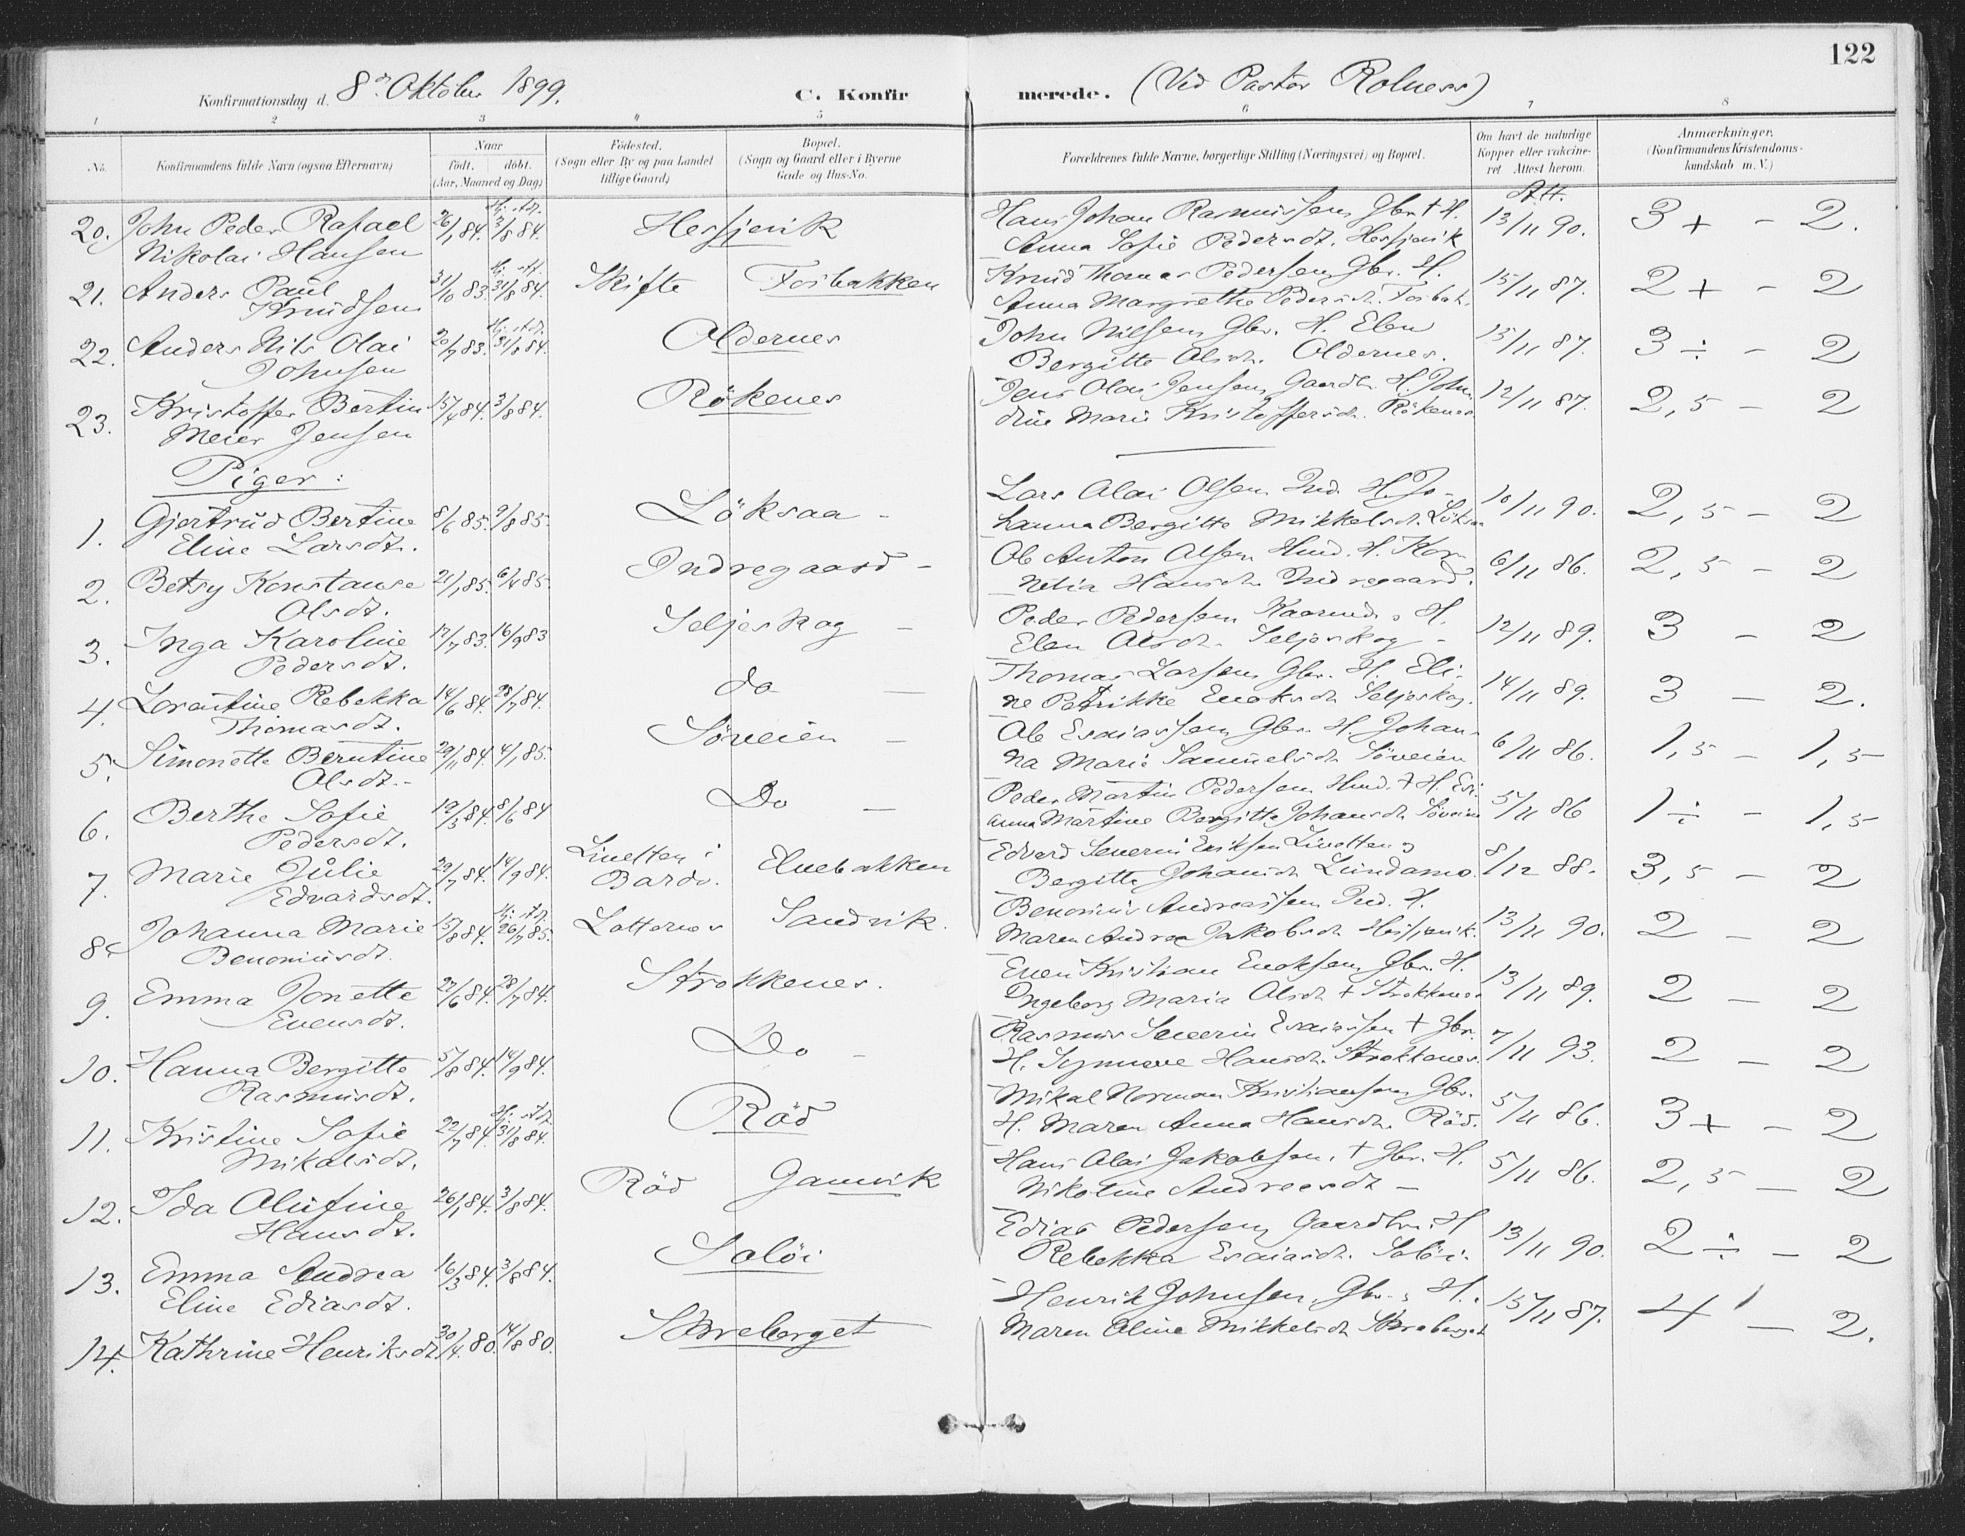 122
Konfirmationsdag d. 8de Oktober 1899. C. Konfirmerede. (Ved Pastor Rolness)
1 2 3 4 5 6 7 8
No. Konfirmandens fulde Navn (ogsaa Efternavn) Naar født, døbt. (Aar, Maaned og Dag) Fødested. (Sogn eller By og paa Landet tillige Gaard) Bopæl. (Sogn og Gaard eller i Byerne Gade og Hus-No. Forældrenes fulde Navne, borgerlige Stilling (Næringsvei) og Bopæl. Om havt de naturlige Kopper eller vakcineret Attest herom. Anmærkninger. (Konfirmandens Kristendomskundskab m. V.)
20. John Peder Rafael 26/1 84. Hj. dbt. 3/8 84. Hessjevik Hans Johan Rasmussen Gbr. + H. 13/11 90. 3 + - 2.
Nikolai Hansen Anna Sofie Pedersdt. Hessjevik
21. Anders Paul 31/10 83. 31/8 84. Skifte Fosbakken Knud Thomas Pedersen Gbr. H. 15/11 87. 2 + - 2
Knudsen Anna Margrethe Pedersdt. Fosbak.
22. Anders Nils Olai 20/7 83. 31/8 84. Oldernes John Nilsen Gbr. H. Elen 15/11 87. 3 ÷ - 2
Johnsen Bergitte Olsdt. Oldernes.
23. Kristoffer Bertin 15/4 84. 3/8 84. Rökenes Jens Olai Jensen Gaardb. H. John 12/11 87. 2,5 - 2
Meier Jensen dine Marie Kristoffersdt. Rökenes
Piger:
1. Gjertrud Bertine 8/6 85. 9/8 85. Löksaa - Lars Olai Olsen Ind. H. Jo- 10/11 90. 2,5 - 2
Eline Larsdt. hanna Bergitte Mikkelsdt. Löksa
2. Betsy Konstanse 21/1 85. 6/4 85. Indregaard - Ole Anton Olsen Hmd. H. Kor- 6/11 86. 2,5 - 2
Olsdt. nelia Hansdt. Indregaard.
3. Inga Karoline 17/7 83. 16/9 83 Seljeskog - Peder Pedersen Kaarmd. H. 12/11 89. 3 - 2
Pedersdt. Elen Olsdt. Seljeskog -
4. Lorentine Rebekka 14/6 84. 28/7 84. do - Thomas Larsen Gbr. H. Eli- 14/11 89. 3 - 2.
Thomasdt. ne Patrikke Enoksdt. Seljeskog.
5. Simonette Berntine 29/11 84. 4/1 85. Söveien - Ole Esaiassen Gbr. H. Johan- 6/11 86. 1,5 - 1,5
Olsdt. - na Marie Samuelsdt. Söveien
6. Berthe Sofie 19/3 84. 8/6 84 Do - Peder Martin Pedersen Hmd. + H. 5/11 86 1 ÷ - 1,5
Pedersdt. anna Martine Bergitte Johansdt. Söveien
7. Marie Julie 29/7 84. 14/9 84. i Bardo. Elvebakken Edvard Severin Eriksen 8/12 88. 3,5 - 2
Edvardsdt. Bergitte Johansdt. Lundamo.
8. Johanna Marie 15/8 84. Hj. dbt. 26/7 85. Sandvik. Benonius Andreassen Ind. H. 13/11 90. 2 - 2
Benoniusdt. Maren Andrea Jakobsdt. Hessjevik.
9. Emma Jonette 27/6 84. 28/7 84. Strokkenes. Even Kristian Enoksen Gbr. H. 13/11 89. 2 - 2
Evensdt. Ingeborg Maria Olsdt. + Strokkenes
10. Hanna Bergitte 5/8 84. 14/9 84. Do - Rasmus Severin Esaiassen + Gbr. 7/11 93. 2 - 2
Rasmusdt. H. Synnøve Hansdt. Strokkenes.
11. Kristine Sofie 22/7 84. Hj. dbt. 31/8 84. Röd Mikal Norman Kristiansen Gbr. 5/11 86. 3 + - 2
Mikalsdt. H. Maren Anna Hansdt. Röd.
12. Ida Olufine 26/1 84. 3/8 84. Röd Gamvik Hans Olai Jakobsen + Gbr. H. 5/11 86. 2,5 - 2
Hansdt. Nikoline Andreasdt -
13. Emma Andrea 16/3 84. 3/8 84. Salöi Edias Pedersen Gaardbr. H 13/11 90. 2 ÷ - 2
Eline Ediasdt. Rebekka Esaiasdt. Salöi.
14. Kathrine Henriksdt 30/4. 80. 14/8 80. Skreberget Henrik Johnsen Gbr. H. 15/11 87. 4 - 2.
Maren Oline Mikkelsdt. Skreberget